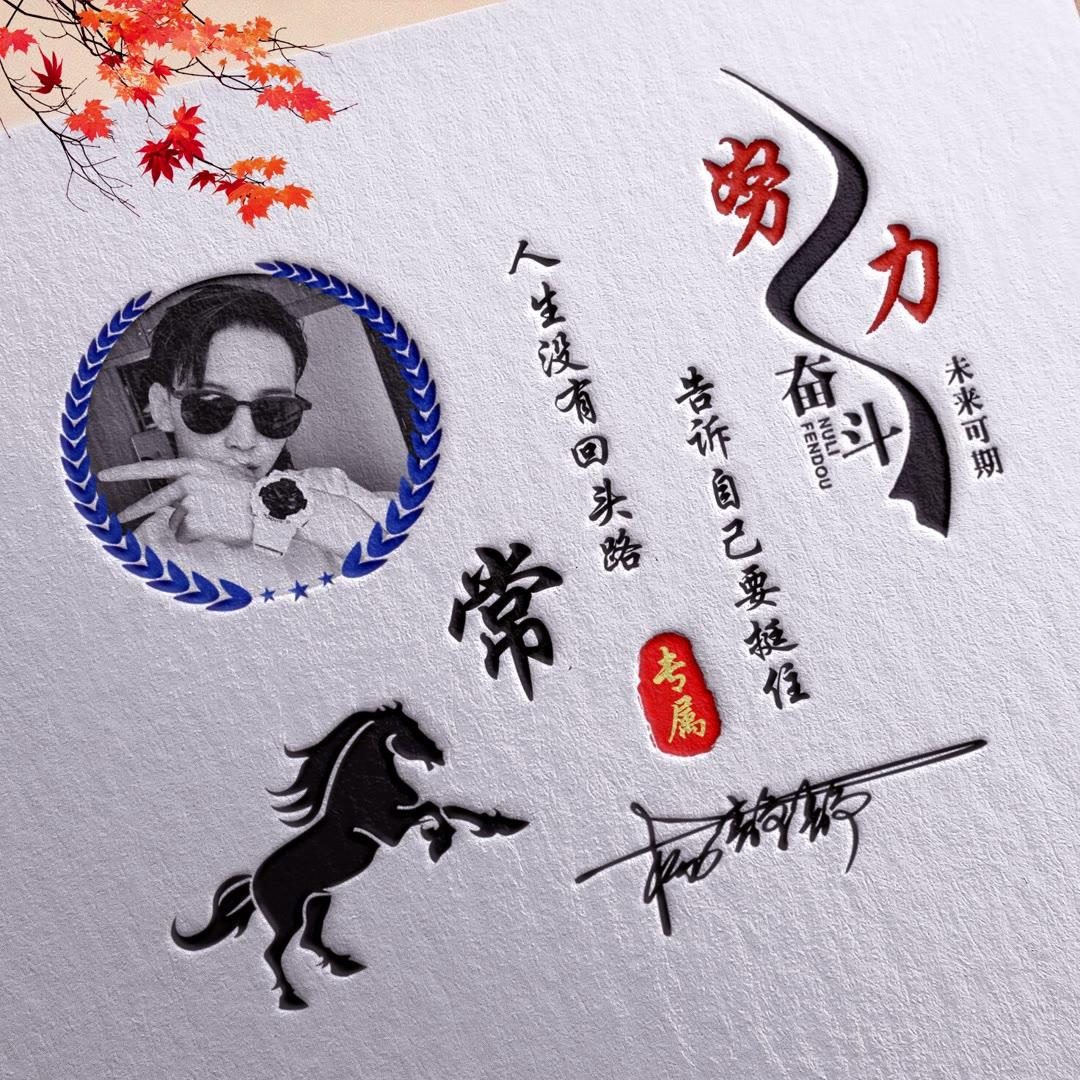 努力
奋斗
NULI
FENDOU
未来可期
人生没有回头路
告诉自己要挺住
常
专属